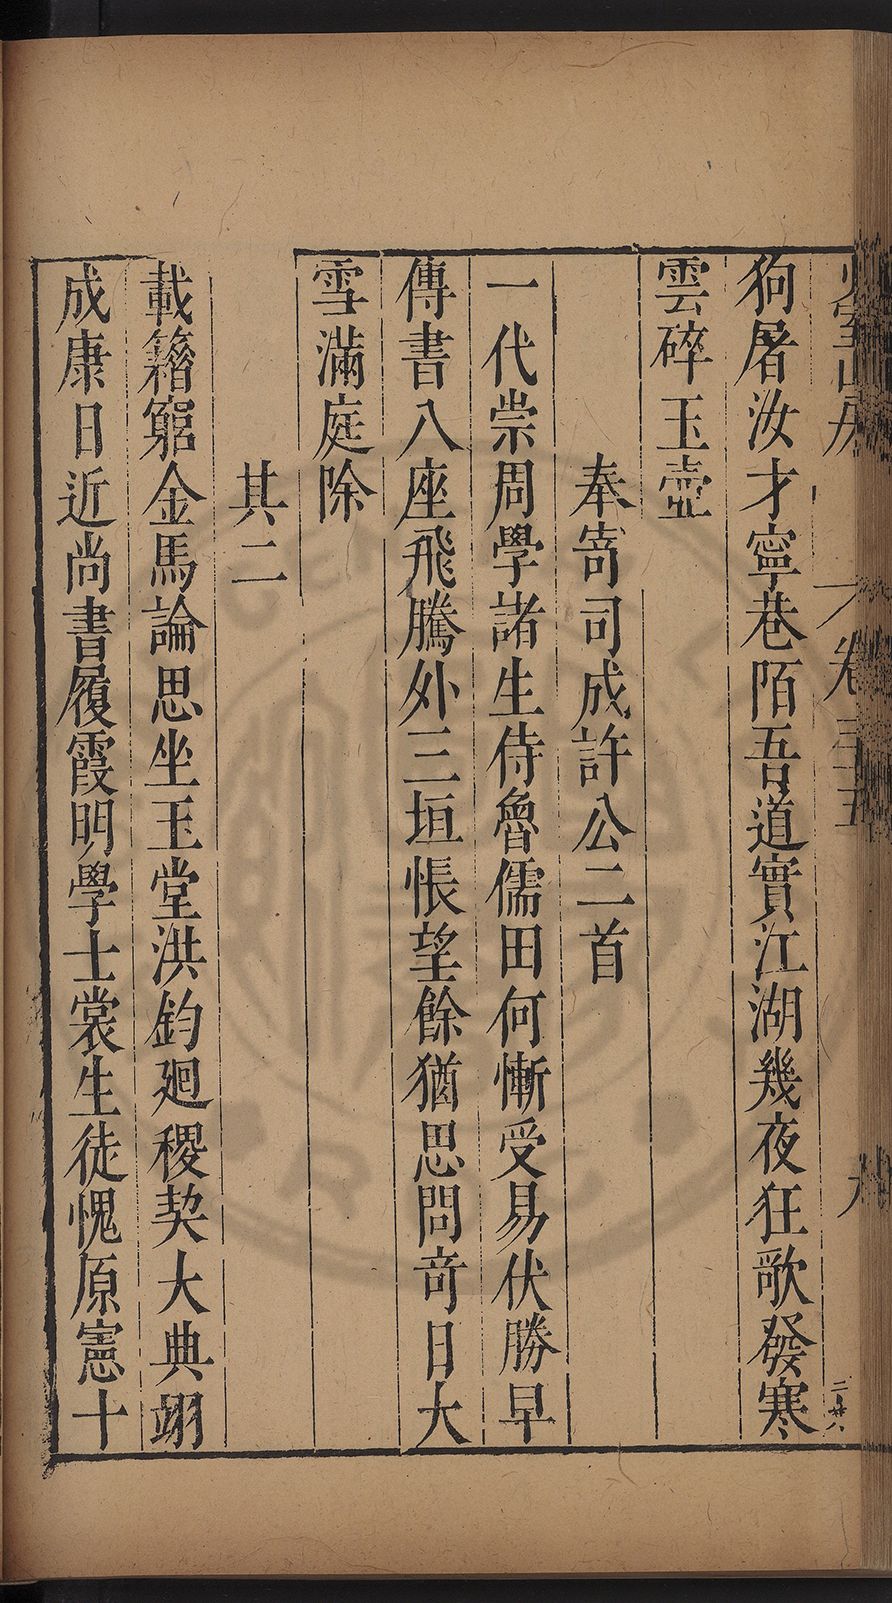 狗屠汝才寧巷陌吾道實江湖幾夜狂歌發寒
雲碎玉壺
奉寄司成許公二首
一代崇周學諸生侍魯儒田何慚受易伏勝早
傳書八座飛騰外三垣悵望餘猶思問奇日大
雪滿庭除
其二
載籍窮金馬論思坐玉堂洪鈞廻稷契大典翊
成康日近尚書履霞明學士裳生徒愧原憲十